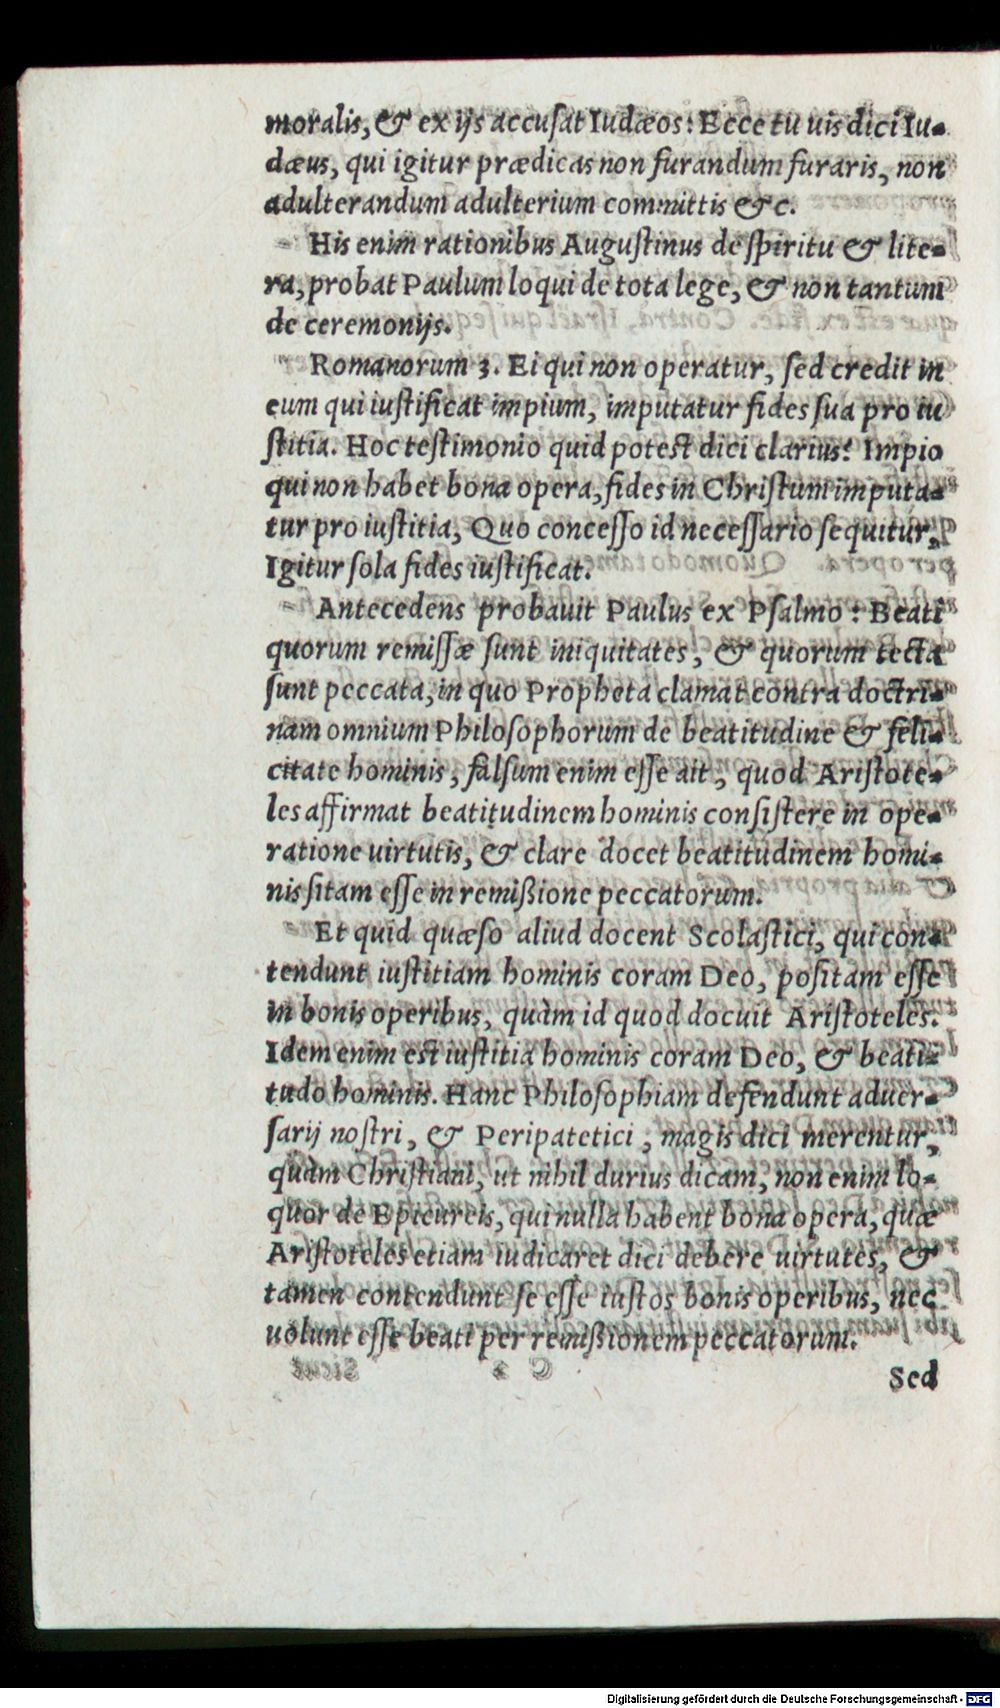 moralis, & ex ijs accuſat Iudæos: Ecce tu uis dici Iu-
dæus, qui igitur prædicas non furandum furaris, non
adulterandum adulterium committis &c.
His enim rationibus Auguſtinus de ſpiritu & lite-
ra, probat Paulum loqui de tota lege, & non tantum
de ceremonijs.
Romanorum 3. Ei qui non operatur, ſed credit in
eum qui iuſtificat impium, imputatur fides ſua pro iu
ſtitia. Hoc teſtimonio quid poteſt dici clarius? Impio
qui non habet bona opera, fides in Chriſtum imputa-
tur pro iuſtitia, Quo conceſſo id neceſſario ſequitur,
Igitur ſola fides iuſtificat.
Antecedens probauit Paulus ex Pſalmo: Beati
quorum remiſſæ ſunt iniquitates, & quorum tecta
ſunt peccata, in quo Propheta clamat contra doctri-
nam omnium Philoſophorum de beatitudine & feli-
citate hominis, falſum enim eſſe ait, quod Ariſtote-
les affirmat beatitudinem hominis conſiſtere in ope-
ratione uirtutis, & clare docet beatitudinem homi-
nis ſitam eſſe in remißione peccatorum.
Et quid quæſo aliud docent Scolaſtici, qui con-
tendunt iuſtitiam hominis coram Deo, poſitam eſſe
in bonis operibus, quàm id quod docuit Ariſtoteles.
Idem enim eſt iuſtitia hominis coram Deo, & beati-
tudo hominis. Hanc Philoſophiam defendunt aduer-
ſarij noſtri, & Peripatetici, magis dici merentur,
quàm Chriſtiani, ut nihil durius dicam, non enim lo-
quor de Epicureis, qui nulla habent bona opera, quæ
Ariſtoteles etiam iudicaret dici debere uirtutes, &
tamen contendunt ſe eſſe iuſtos bonis operibus, nec
uolunt eſſe beati per remißionem peccatorum.
Sed
Digitalisierung gefördert durch die Deutsche Forschungsgemeinschaft - DFG